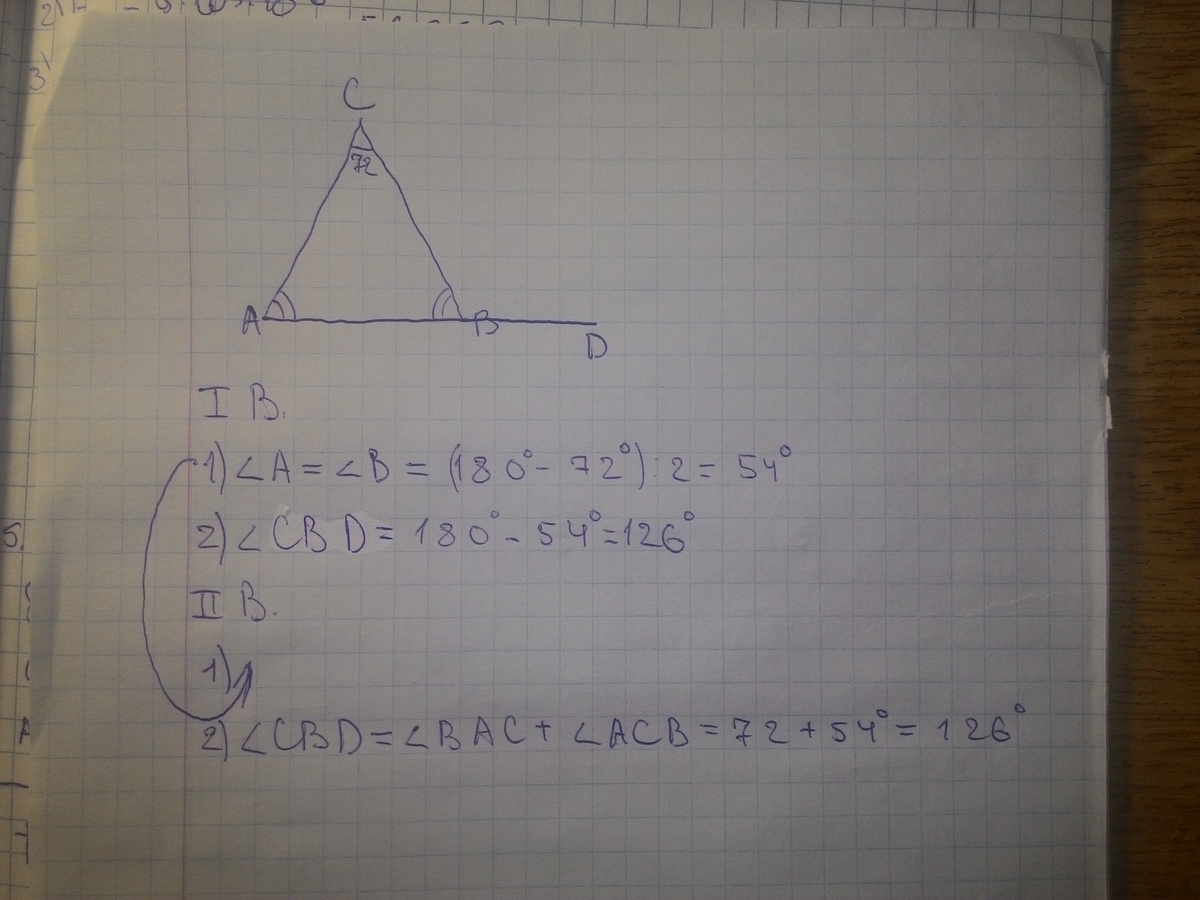 C
72
A
B
D
I В.
1) ∠A = ∠B = (180° - 72°) : 2 = 54°
2) ∠CBD = 180° - 54° = 126°
II В.
1)
2) ∠CBD = ∠BAC + ∠ACB = 72 + 54° = 126°